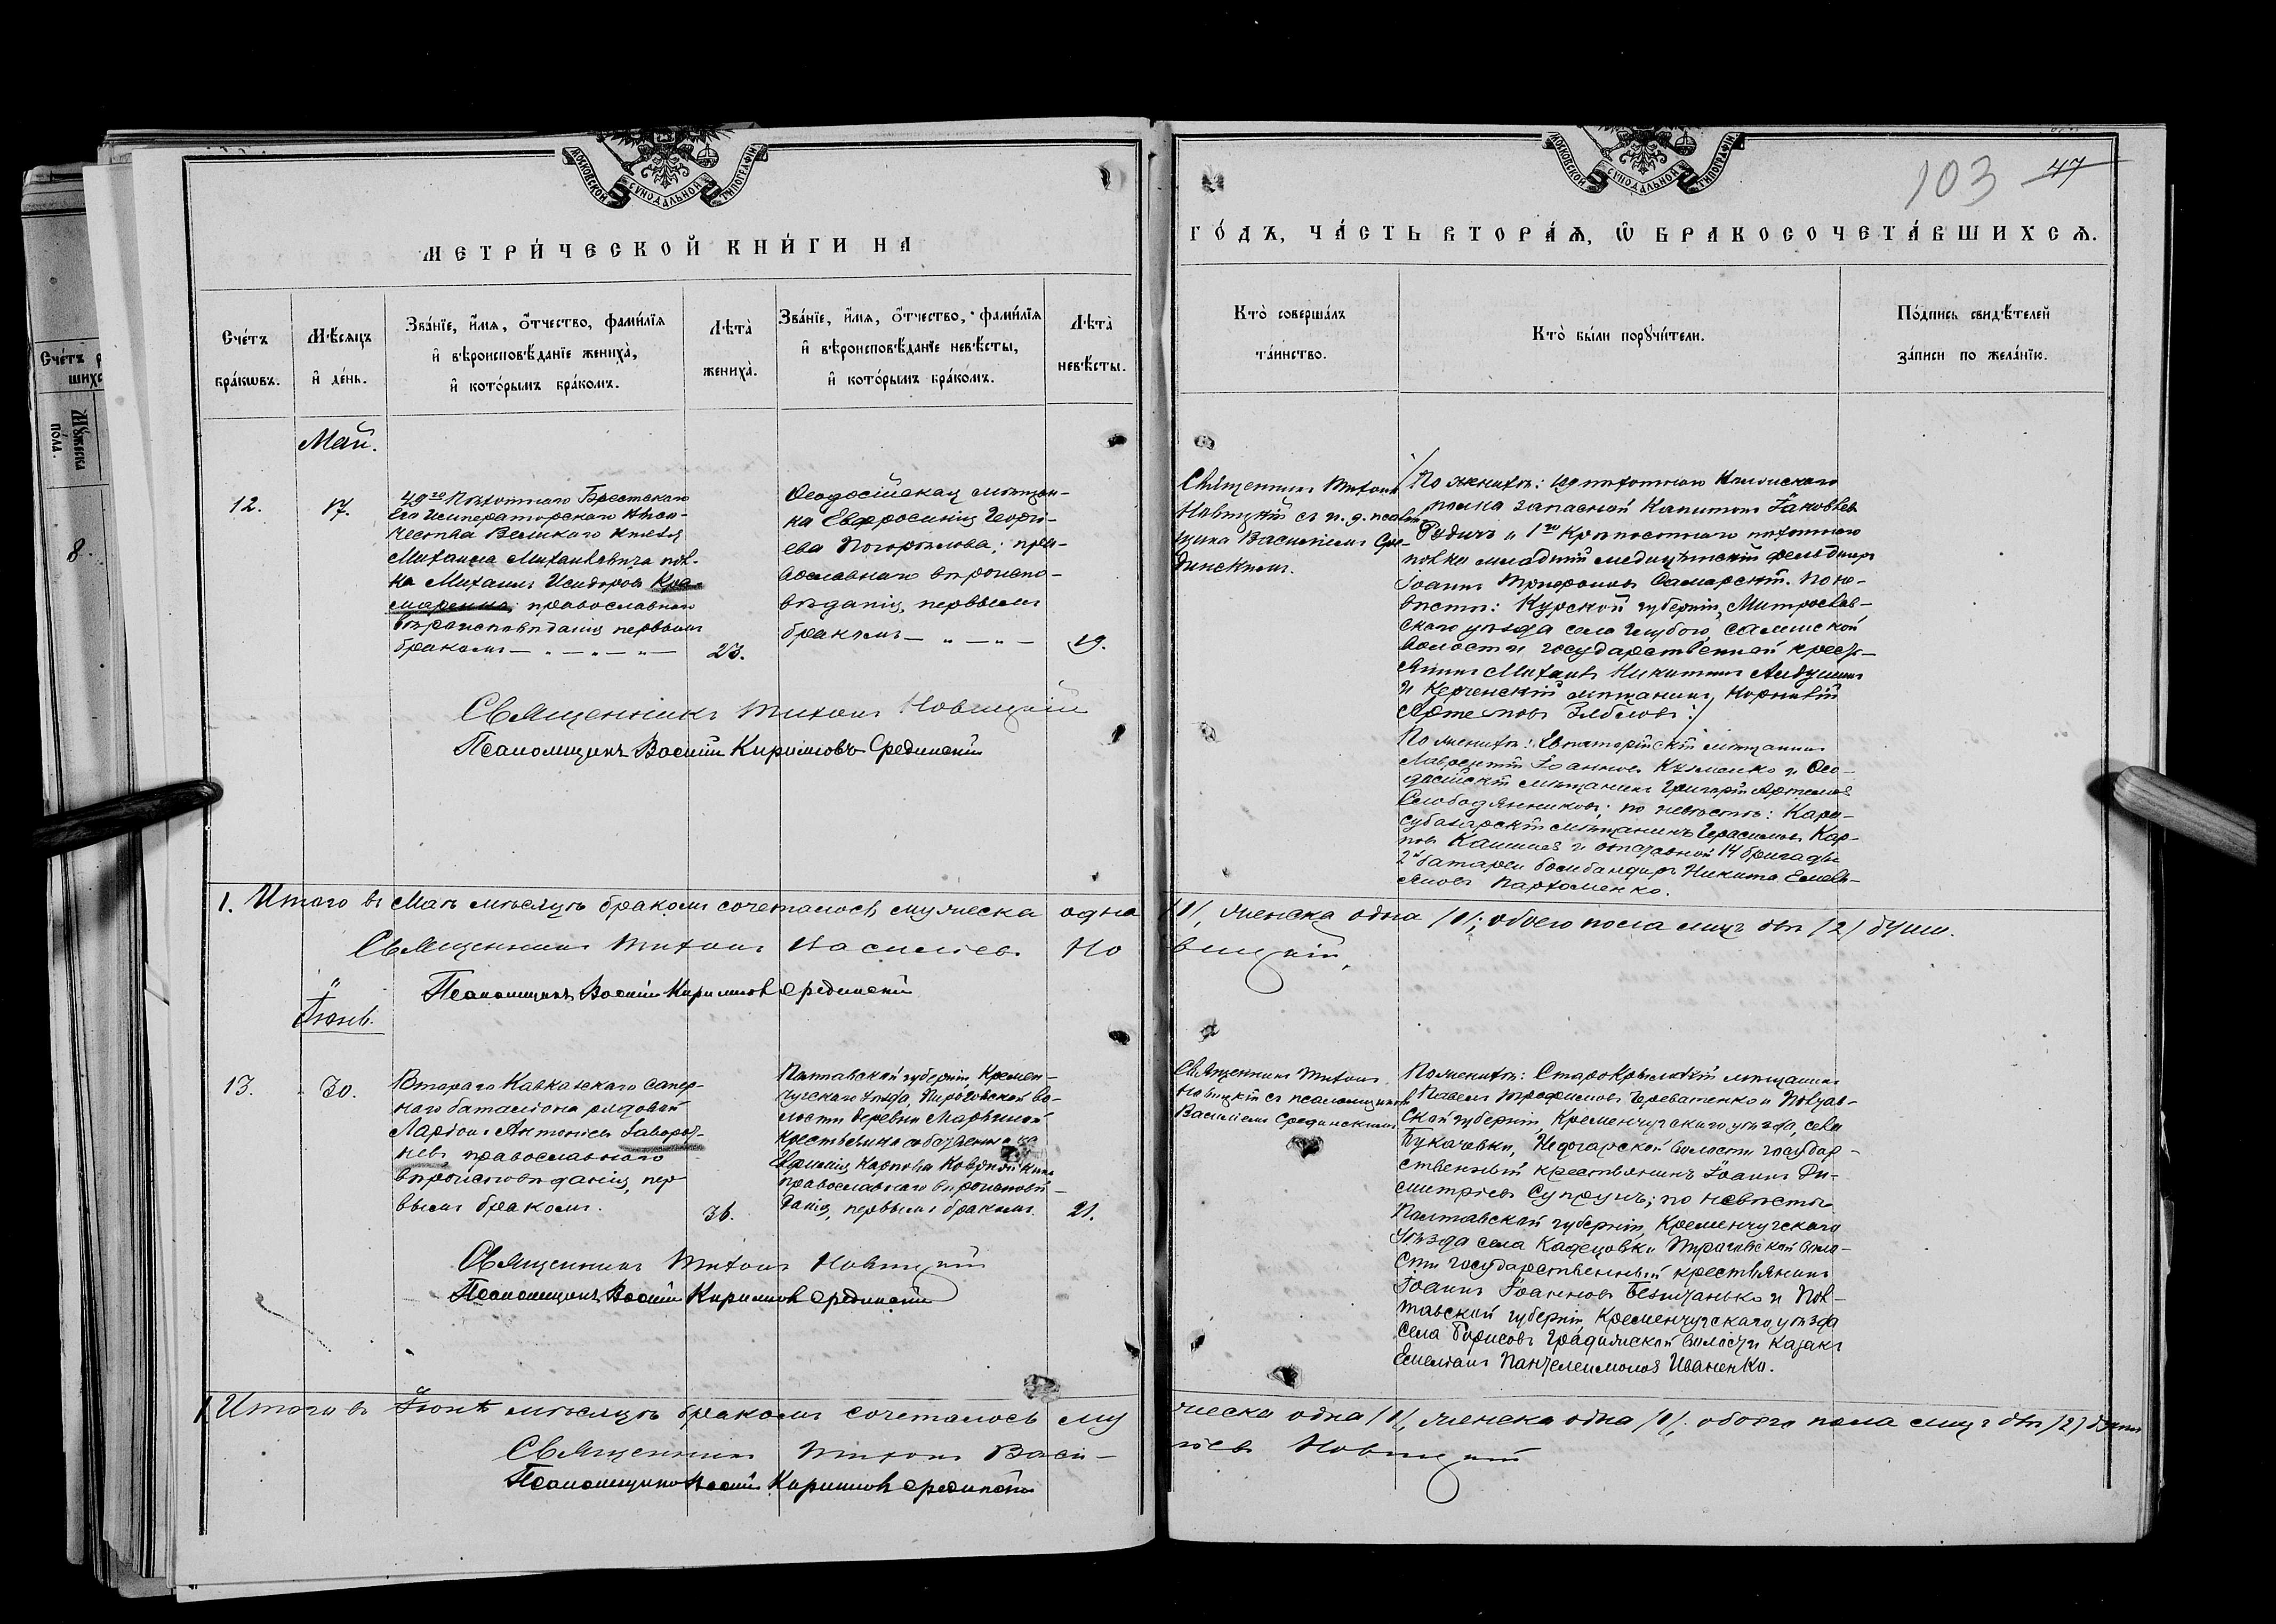 МОСКОВСКОЙ СѴНОДАЛЬНОЙ ТИПОГРАФІИ
МЕТРИ́ЧЕСКОЙ КНИ́ГИ НА
Сче́тъ
бра́кѡвъ.
Мѣ́сяцъ
и҆ де́нь.
Зва́нїе, и҆́мя, ѻ҆́тчество, фами́лїя
и҆ вѣроисповѣ́данїе жениха̀,
и҆ кото́рымъ бра́комъ.
Лѣта̀
жениха̀.
Зва́нїе, и҆́мя, ѻ҆́тчество, фами́лїя
и҆ вѣроисповѣ́данїе невѣ́сты,
и҆ кото́рымъ бра́комъ.
Лѣта̀
невѣ́сты.
Май.
12.
17.
49го Пѣхотнаго Брестскаго
Его Императорскаго Высо-
чества Великаго Князя
Михаила Михаиловича пол-
ка Михаилъ Исидоровъ
православнаго
вѣроисповѣданія первымъ
бракомъ — „ — „ — „ —
23.
Ѳеодосійская мѣщан-
ка Евфросинія Георгі-
ева Погорѣлова; пра-
вославнаго вѣроиспо-
вѣданія, первымъ
бракомъ — „ — „ —
19.
Священникъ Тихонъ Новицкій
Псаломщикъ Василій Кириловъ Срединскій
1. Итого въ Маѣ мѣсяцѣ бракомъ сочеталось мужеска одна
Священникъ Тихонъ Василіевъ Но
Псаломщикъ Василій Кириловъ Срединскій
Іюнь.
13.
30.
Втораго Кавказскаго Сапер-
наго баталіона рядовой
Ларіонъ Антоніевъ Заворот-
невъ православнаго
вѣроисповѣданія, пер-
вымъ бракомъ.
36.
Полтавской губерніи, Кремен-
чугскаго уѣзда, Пироговской во-
лости деревни Марьиной
крестьянка собственница
Карпова
православнаго вѣроисповѣ-
данія, первымъ бракомъ.
21.
Священникъ Тихонъ Новицкій
Псаломщикъ Василій Кириловъ Срединскій
1 Итого въ Іюнѣ мѣсяцѣ бракомъ сочеталось му
Священникъ Тихонъ Васи-
Псаломщикъ Василій Кириловъ Срединскій
Сче́тъ
8.
МОСКОВСКОЙ СѴНОДАЛЬНОЙ ТИПОГРАФІИ
103 47
ГО́ДЪ, ЧА́СТЬ ВТОРА́Я, Ѡ҆ БРАКОСОЧЕТА́ВШИХСЯ.
Кто̀ соверша́лъ
та́инство.
Кто̀ бы́ли порꙋчи́тели.
По́дпись свидѣ́телей
за́писи по жела́нїю.
Священникъ Тихонъ
Новицкій съ и. д. псалом-
щика Василіемъ Сре-
динскимъ.
По женихѣ:
полка запасной Капитонъ Іаковлевъ
Рудичъ и 1го Крѣпостнаго пѣхотнаго
полка младшій медицинскій фельдшеръ
Іоаннъ Самарскій. По не-
вѣстѣ: Курской губерніи,
скаго уѣзда села
волости государственный кресть-
янинъ Михаилъ Никитинъ
и Керченскій мѣщанинъ, Корнилій
По женихѣ: Евпаторійскій мѣщанинъ
Лаврентій Іоанновъ Кузменко и Ѳео-
досійскій мѣщанинъ Григорій Артемовъ
Слободянниковъ; по невѣстѣ: Кара-
субазарскій мѣщанинъ Герасимъ Кар-
повъ и отставной 14 бригады
2й батареи бомбандиръ Никита Емель-
яновъ Пархоменко.
/1/, женска одна /1/; обоего пола лицъ двѣ /2/ души.
вицкій.
Священникъ Тихонъ
Новицкій съ псаломщикомъ
Василіемъ Срединскимъ
По женихѣ: Старокрымскій мѣщанинъ
Павелъ Трофимовъ Череватенко и Полтав-
ской губерніи, Кременчугскаго уѣзда, села
Букачевки, волости государ-
ственный крестьянинъ Іоаннъ Ди-
митріевъ Супрунъ; по невѣстѣ
Полтавской губерніи, Кременчугскаго
уѣзда села воло-
сти государственный крестьянинъ
Іоаннъ Іоанновъ и Пол-
тавской губерніи, Кременчугскаго уѣзда
села Градижской волости казакъ
Емеліанъ Пантелеимоновъ Иваненко.
жеска одна /1/, женска одна /1/; обоего пола лицъ двѣ /2/ души
ліевъ Новицкій